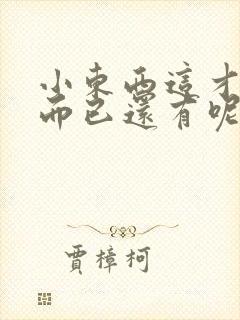 小東西這才
而已還有呢
賈樟柯